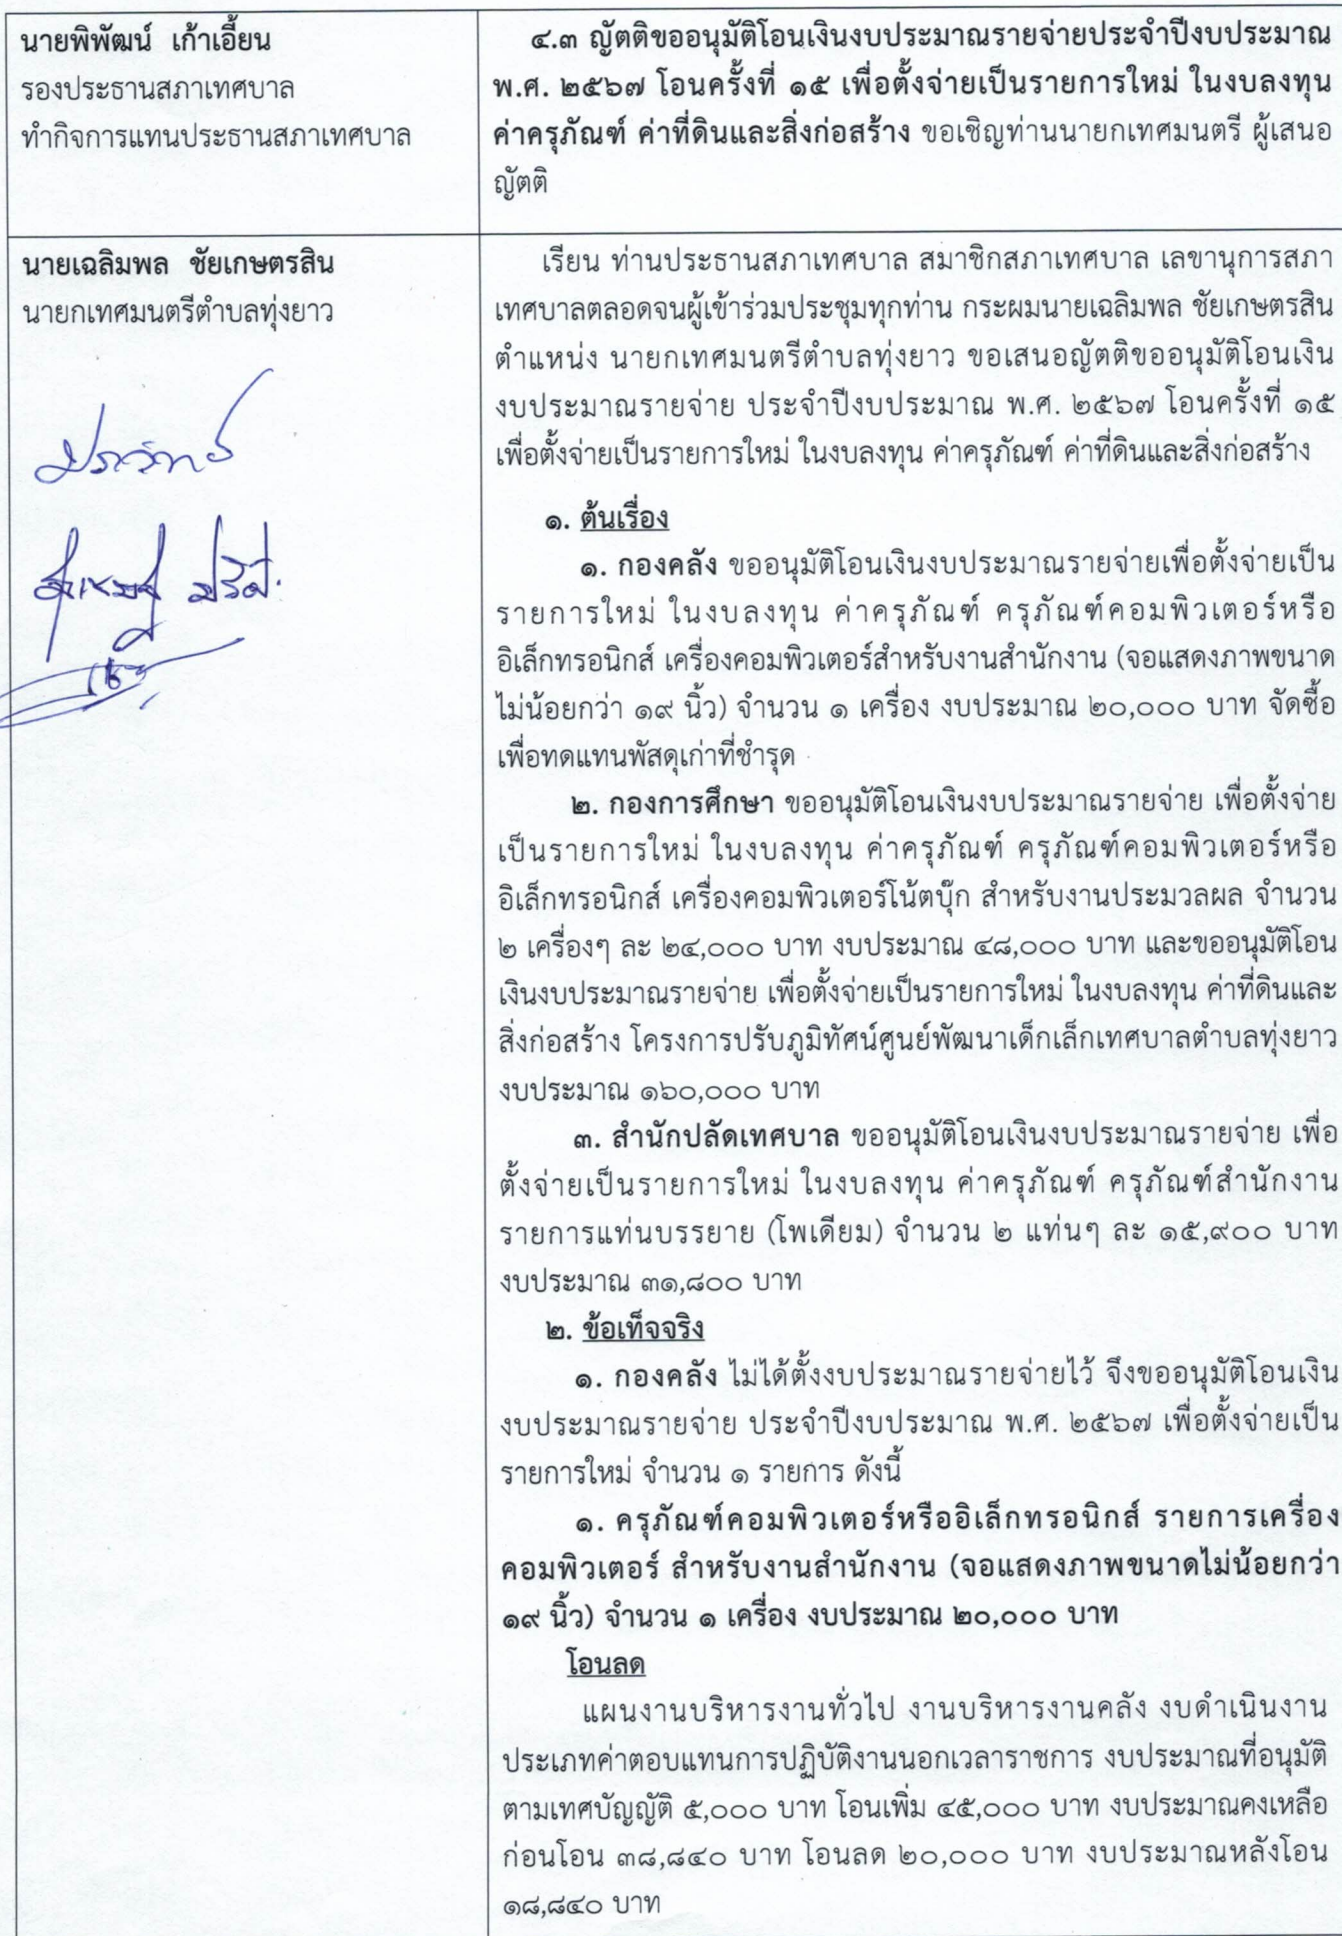 นายพิพัฒน์ เก้าเอี้ยน
รองประธานสภาเทศบาล
ทำกิจการแทนประธานสภาเทศบาล
๔.๓ ญัตติขออนุมัติโอนเงินงบประมาณรายจ่ายประจำปีงบประมาณ
พ.ศ. ๒๕๖๗ โอนครั้งที่ ๑๕ เพื่อตั้งจ่ายเป็นรายการใหม่ ในงบลงทุน
ค่าครุภัณฑ์ ค่าที่ดินและสิ่งก่อสร้าง ขอเชิญท่านนายกเทศมนตรี ผู้เสนอ
ญัตติ
นายเฉลิมพล ชัยเกษตรสิน
นายกเทศมนตรีตำบลทุ่งยาว
เรียน ท่านประธานสภาเทศบาล สมาชิกสภาเทศบาล เลขานุการสภา
เทศบาลตลอดจนผู้เข้าร่วมประชุมทุกท่าน กระผมนายเฉลิมพล ชัยเกษตรสิน
ตำแหน่ง นายกเทศมนตรีตำบลทุ่งยาว ขอเสนอญัตติขออนุมัติโอนเงิน
งบประมาณรายจ่าย ประจำปีงบประมาณ พ.ศ. ๒๕๖๗ โอนครั้งที่ ๑๕
เพื่อตั้งจ่ายเป็นรายการใหม่ ในงบลงทุน ค่าครุภัณฑ์ ค่าที่ดินและสิ่งก่อสร้าง
๑. ต้นเรื่อง
๑. กองคลัง ขออนุมัติโอนเงินงบประมาณรายจ่ายเพื่อตั้งจ่ายเป็น
รายการใหม่ ในงบลงทุน ค่าครุภัณฑ์ ครุภัณฑ์คอมพิวเตอร์หรือ
อิเล็กทรอนิกส์ เครื่องคอมพิวเตอร์สำหรับงานสำนักงาน (จอแสดงภาพขนาด
ไม่น้อยกว่า ๑๙ นิ้ว) จำนวน ๑ เครื่อง งบประมาณ ๒๐,๐๐๐ บาท จัดซื้อ
เพื่อทดแทนพัสดุเก่าที่ชำรุด
๒. กองการศึกษา ขออนุมัติโอนเงินงบประมาณรายจ่าย เพื่อตั้งจ่าย
เป็นรายการใหม่ ในงบลงทุน ค่าครุภัณฑ์ ครุภัณฑ์คอมพิวเตอร์หรือ
อิเล็กทรอนิกส์ เครื่องคอมพิวเตอร์โน้ตบุ๊ก สำหรับงานประมวลผล จำนวน
๒ เครื่องๆ ละ ๒๔,๐๐๐ บาท งบประมาณ ๔๘,๐๐๐ บาท และขออนุมัติโอน
เงินงบประมาณรายจ่าย เพื่อตั้งจ่ายเป็นรายการใหม่ ในงบลงทุน ค่าที่ดินและ
สิ่งก่อสร้าง โครงการปรับภูมิทัศน์ศูนย์พัฒนาเด็กเล็กเทศบาลตำบลทุ่งยาว
งบประมาณ ๑๖๐,๐๐๐ บาท
๓. สำนักปลัดเทศบาล ขออนุมัติโอนเงินงบประมาณรายจ่าย เพื่อ
ตั้งจ่ายเป็นรายการใหม่ ในงบลงทุน ค่าครุภัณฑ์ ครุภัณฑ์สำนักงาน
รายการแท่นบรรยาย (โพเดียม) จำนวน ๒ แท่นๆ ละ ๑๕,๙๐๐ บาท
งบประมาณ ๓๑,๘๐๐ บาท
๒. ข้อเท็จจริง
๑. กองคลัง ไม่ได้ตั้งงบประมาณรายจ่ายไว้ จึงขออนุมัติโอนเงิน
งบประมาณรายจ่าย ประจำปีงบประมาณ พ.ศ. ๒๕๖๗ เพื่อตั้งจ่ายเป็น
รายการใหม่ จำนวน ๑ รายการ ดังนี้
๑. ครุภัณฑ์คอมพิวเตอร์หรืออิเล็กทรอนิกส์ รายการเครื่อง
คอมพิวเตอร์ สำหรับงานสำนักงาน (จอแสดงภาพขนาดไม่น้อยกว่า
๑๙ นิ้ว) จำนวน ๑ เครื่อง งบประมาณ ๒๐,๐๐๐ บาท
โอนลด
แผนงานบริหารงานทั่วไป งานบริหารงานคลัง งบดำเนินงาน
ประเภทค่าตอบแทนการปฏิบัติงานนอกเวลาราชการ งบประมาณที่อนุมัติ
ตามเทศบัญญัติ ๕,๐๐๐ บาท โอนเพิ่ม ๔๕,๐๐๐ บาท งบประมาณคงเหลือ
ก่อนโอน ๓๘,๘๔๐ บาท โอนลด ๒๐,๐๐๐ บาท งบประมาณหลังโอน
๑๘,๘๔๐ บาท